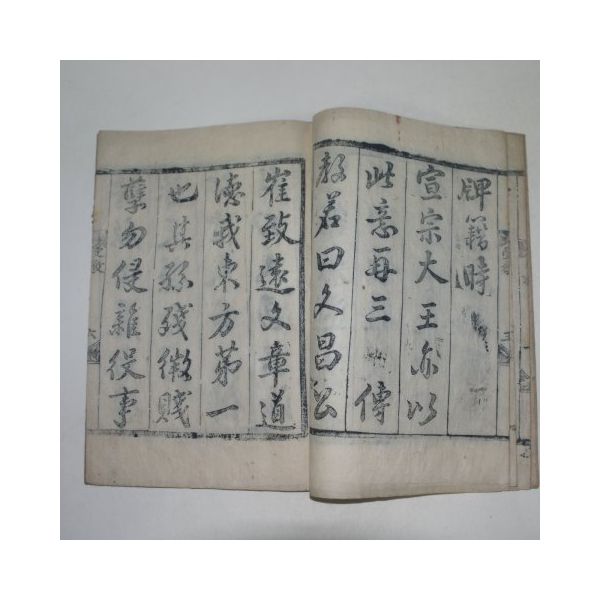 牌籍時
宣宗大王亦以
此意再三傳
教若曰文昌公
崔致遠文章道
德我東方第一
也其孫殘微賤
孽勿侵雜役事
六